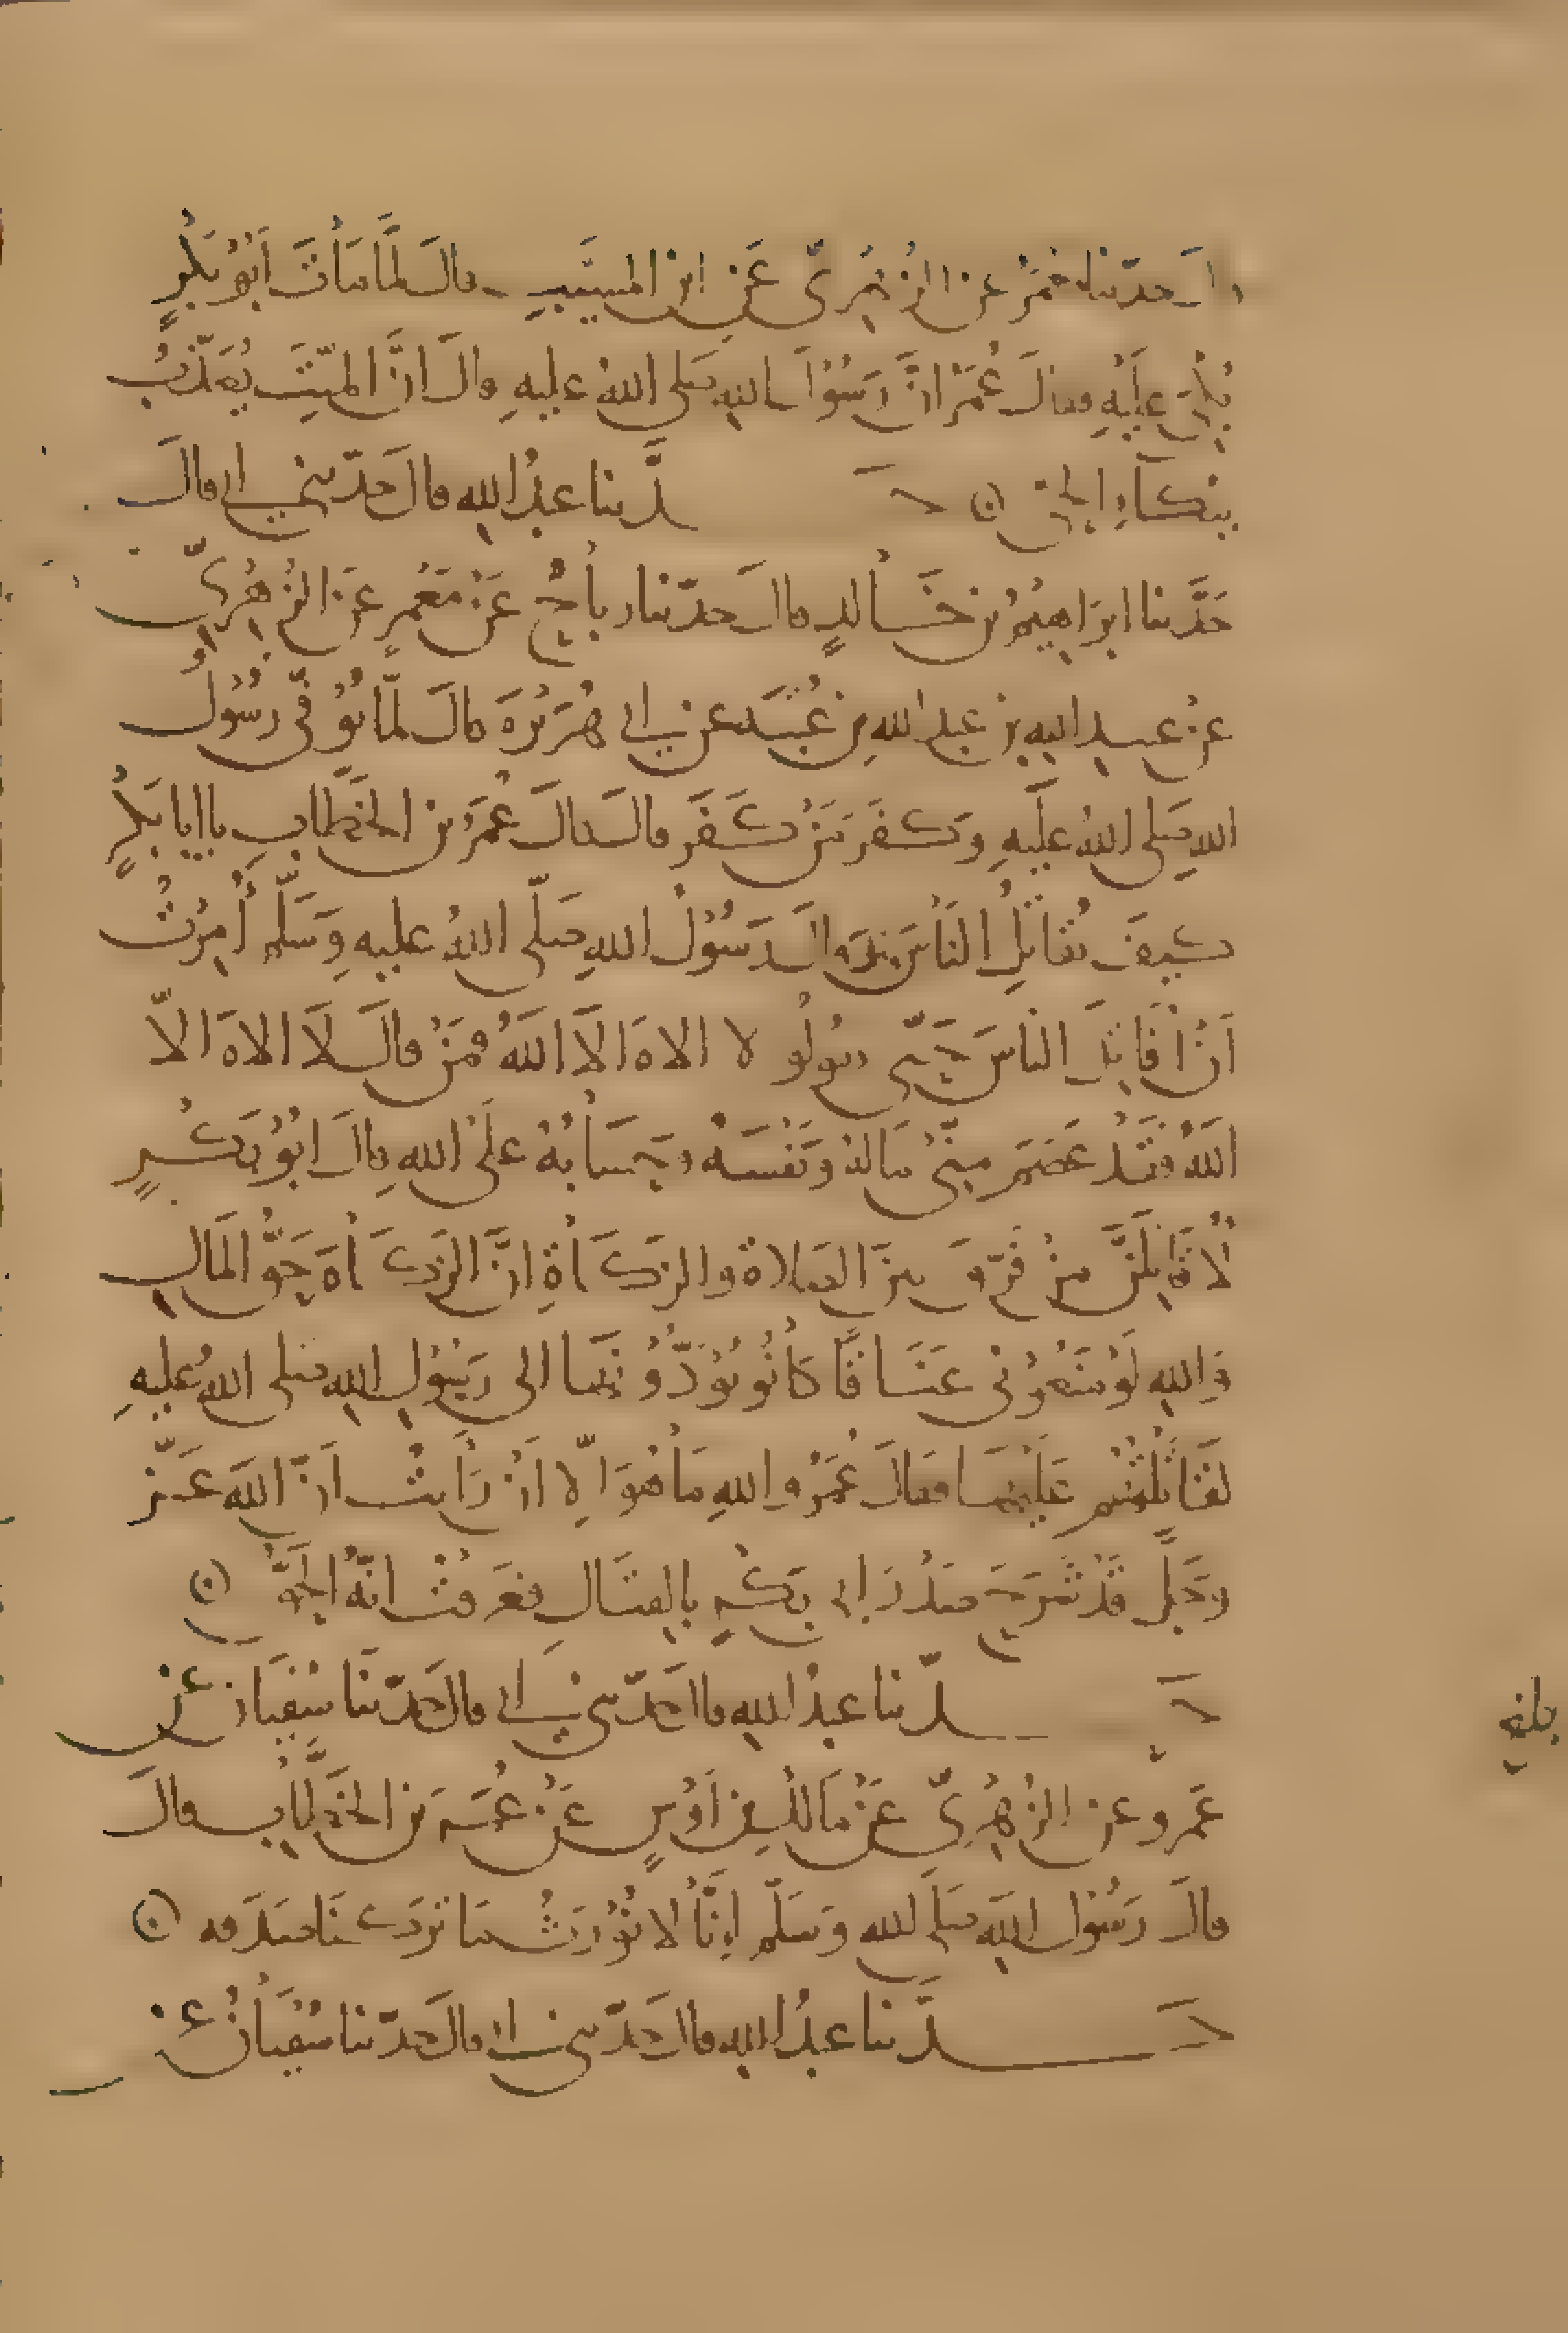 قال حدثنا معمر عن الزُهْرِيّ عَنِ ابن المسَيّبِ قالَ لَمَّا مَاتَ أَبُو بَكْرٍ
بُكِيَ عَلَيْهِ فقالَ عُمَرُ انَّ رَسُوْلَ اللهِ صَلى اللهُ عليهِ قالَ انَّ الميِّتَ يُعَذّبُ
ببُكَاءِ الحيّ
حدَّثنا عبدُ اللهِ قالَ حدّثني أبي قالَ
حَدَّثنا ابرَاهِيمُ بن خَالدٍ قالَ حدّثنا رباحٌ عَنْ مَعْمَرٍ عَنِ الزُهْرِيّ
عَنْ عبيدِ اللهِ بنِ عبدِ اللهِ بنِ عُتْبَةَ عن أبي هُرَيْرَةَ قالَ لمّا تُوُفّيَ رسُوْلُ
اللهِ صَلى اللهُ عَلَيْهِ وَكفَرَ مَنْ كَفَرَ قالَ قالَ عُمَرُ بن الخَطَّابِ يا ابا بَكْرٍ
كيفَ تُقَاتِلُ النَاسَ وَقد قالَ رَسُوْلُ اللهِ صَلّى اللهُ عليهِ وَسَلّم أُمِرْتُ
اَنْ أُقَاتِلَ الناسَ حَتّى يقولُو لا الاهَ الَّا اللَّهُ فمَنْ قالَ لَا الاهَ الّا
اللَّهُ فَقَدْ عَصَمَ مِنّيْ مَالهُ وَنَفْسَهُ وَحِسَابُهُ عَلَى اللهِ قالَ ابُوْ بَكْرٍ
لأُقَاتِلَنَّ مَنْ فَرّقَ بينَ الصَلاةِ والزكَاةِ انَّ الزَكَاةَ حَقُّ المَالِ
وَاللهِ لَوْ مَنَعُوْنِي عَنَاقًا كَانُو يُؤَدُّوْنَهَا الى رَسُوْلِ اللهِ صَلى اللهُ عَليهِ
لقَاتَلْتُهُمْ عَلَيْهَا فقالَ عُمَرُ واللهِ مَا هُوَ اِلّا اَنْ رَأيتُ اَنَّ اللهَ عَزّ
وَجَلَّ قَدْ شَرَحَ صَدْرَ ابي بَكْرٍ بالقتَالِ فعَرَفْتُ انّهُ الحَقُّ
حدّثنا عبدُ اللهِ قالَ حَدّثني أبي قالَ حَدّثنَا سُفيَانُ عَنْ
عَمْرو عن الزُهْرِيّ عَنْ مَالكِ بنِ أَوْسٍ عَنْ عُمَرَ بن الخَطَّابِ قالَ
قالَ رَسُوْلُ اللهِ صَلَى الله وَسَلّم اِنَّا لا نُوْرَثُ مَا تَرَكْنَا صَدَقه
حدَّثنا عبدُ اللهِ قالَ حَدّثني أبي قالَ حَدّثنا سُفيَانُ عَنْ
بلغ